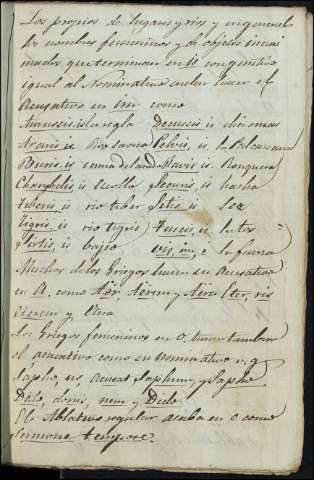 Los propios de lugares y rios y en general
los nombres femeninos y de objetos inani
mados que terminan en is con genitivo
igual al Nominativo suelen hacer el
Acusativo en im como
regla is
Araris is Rio Saona Pelvis, is, la Palangana
Buris, is cama del arado Ravis is Ronquera
Charybdis is escollo Securis, is hacha
Tiberis, is rio tiber Sitis, is sed
Tigris, is rio tigris Tussis, is la tos
Sirtis, is bajio vis, im, e la fuerza
Muchos de los Griegos hacen en Acusativo
en A. como Aer, Aerem y Aera Eter, ris
eterem y etera
Los Griegos femeninos en o, tienen tambien
el acusativo como en nominativo v. g
Sapho, us, acusat Saphum, y Sapho
Dido, donis, nem y Dido
El Ablativo regular acaba en e como
Sermone tempore